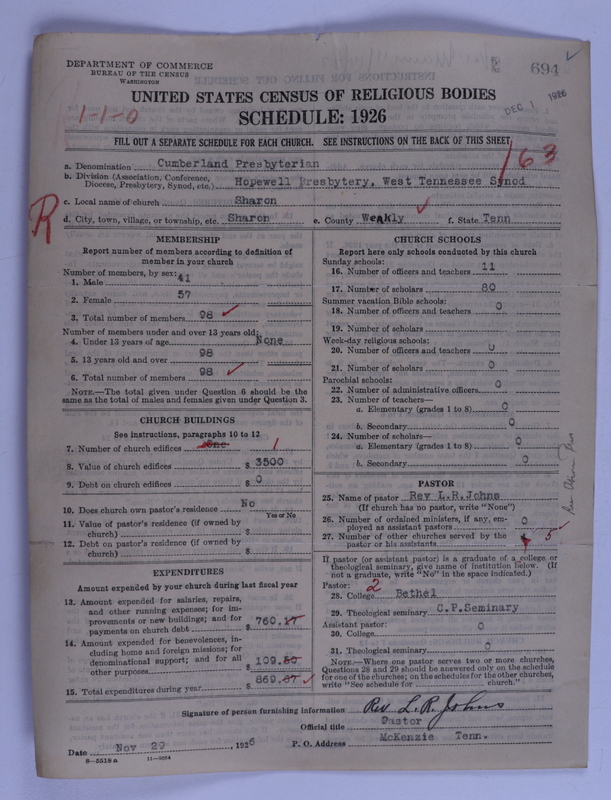 DEPARTMENT OF COMMERCE
BUREAU OF THE CENSUS
WASHINGTON
694
DEC 1 1926
UNITED STATES CENSUS OF RELIGIOUS BODIES
SCHEDULE: 1926
1-1-0
FILL OUT A SEPARATE SCHEDULE FOR EACH CHURCH. SEE INSTRUCTIONS ON THE BACK OF THIS SHEET
163
a. Denomination Cumberland Presbyterian
b. Division (Association, Conference, Diocese, Presbytery, Synod, etc.) Hopewell Presbytery, West Tennessee Synod
c. Local name of church Sharon
R
d. City, town, village, or township, etc. Sharon e. County Weakly f. State Tenn
MEMBERSHIP
Report number of members according to definition of
member in your church
Number of members, by sex:
1. Male 41
2. Female 57
3. Total number of members 98
Number of members under and over 13 years old:
4. Under 13 years of age None
5. 13 years old and over 98
6. Total number of members 98
NOTE.—The total given under Question 6 should be the
same as the total of males and females given under Question 3.
CHURCH BUILDINGS
See instructions, paragraphs 10 to 12
7. Number of church edifices 1
8. Value of church edifices $ 3500
9. Debt on church edifices $ 0
10. Does church own pastor's residence No
Yes or No
11. Value of pastor's residence (if owned by
church) $
12. Debt on pastor's residence (if owned by
church) $
EXPENDITURES
Amount expended by your church during last fiscal year
13. Amount expended for salaries, repairs,
and other running expenses; for im-
provements or new buildings; and for
payments on church debt $ 760.17
14. Amount expended for benevolences, in-
cluding home and foreign missions; for
denominational support; and for all
other purposes $ 109.50
15. Total expenditures during year $ 869.67
CHURCH SCHOOLS
Report here only schools conducted by this church
Sunday schools:
16. Number of officers and teachers 11
17. Number of scholars 80
Summer vacation Bible schools:
18. Number of officers and teachers 0
19. Number of scholars
Week-day religious schools:
20. Number of officers and teachers 0
21. Number of scholars 0
Parochial schools:
22. Number of administrative officers 0
23. Number of teachers—
a. Elementary (grades 1 to 8) 0
b. Secondary 0
24. Number of scholars—
a. Elementary (grades 1 to 8) 0
b. Secondary 0
PASTOR
25. Name of pastor Rev L.R.Johns
(If church has no pastor, write "None")
26. Number of ordained ministers, if any, em-
ployed as assistant pastors 0
27. Number of other churches served by the
pastor or his assistants 5
If pastor (or assistant pastor) is a graduate of a college or
theological seminary, give name of institution below. (If
not a graduate, write "No" in the space indicated.)
Pastor: 2
28. College Bethel
29. Theological seminary C.P.Seminary
Assistant pastor:
30. College 0
31. Theological seminary 0
NOTE.—Where one pastor serves two or more churches,
Questions 28 and 29 should be answered only on the schedule
for one of the churches; on the schedules for the other churches,
write "See schedule for church."
Signature of person furnishing information Rev. L. R. Johns
Official title Pastor
Date Nov 29, 1926 P. O. Address McKenzie Tenn.
8-5518 a 11-9264